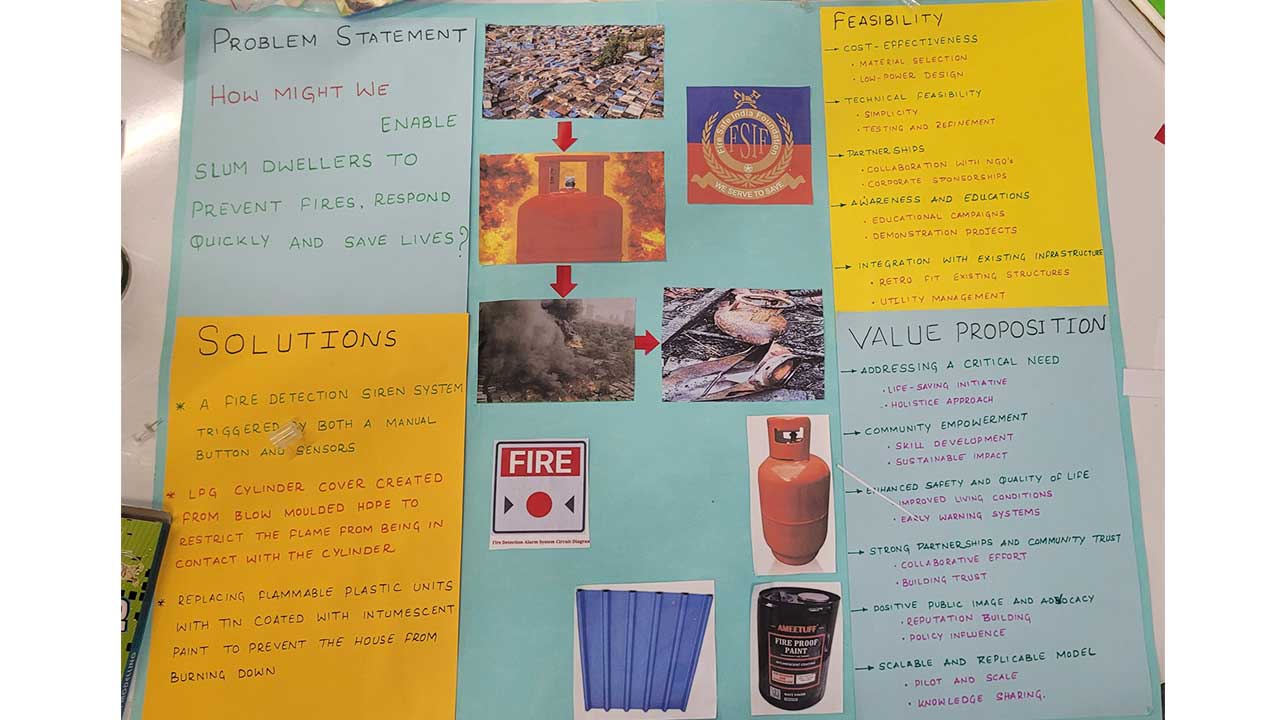 PROBLEM STATEMENT
HOW MIGHT WE
ENABLE
SLUM DWELLERS TO
PREVENT FIRES, RESPOND
QUICKLY AND SAVE LIVES?
SOLUTIONS
* A FIRE DETECTION SIREN SYSTEM
TRIGGERED BY BOTH A MANUAL
BUTTON AND SENSORS
* LPG CYLINDER COVER CREATED
FROM BLOW MOULDED HDPE TO
RESTRICT THE FLAME FROM BEING IN
CONTACT WITH THE CYLINDER
* REPLACING FLAMMABLE PLASTIC UNITS
WITH TIN COATED WITH INTUMESCENT
PAINT TO PREVENT THE HOUSE FROM
BURNING DOWN
Fire Safe India Foundation
FSIF
WE SERVE TO SAVE
FIRE
Fire Detection Alarm System Circuit Diagram
AMEETUFF
FIRE PROOF
PAINT
FEASIBILITY
→ COST-EFFECTIVENESS
• MATERIAL SELECTION
• LOW-POWER DESIGN
→ TECHNICAL FEASIBILITY
• SIMPLICITY
• TESTING AND REFINEMENT
→ PARTNERSHIPS
• COLLABORATION WITH NGO's
• CORPORATE SPONSORSHIPS
→ AWARENESS AND EDUCATIONS
• EDUCATIONAL CAMPAIGNS
• DEMONSTRATION PROJECTS
→ INTEGRATION WITH EXISTING INFRASTRUCTURE
• RETRO FIT EXISTING STRUCTURES
• UTILITY MANAGEMENT
VALUE PROPOSITION
→ ADDRESSING A CRITICAL NEED
• LIFE-SAVING INITIATIVE
• HOLISTICE APPROACH
→ COMMUNITY EMPOWERMENT
• SKILL DEVELOPMENT
• SUSTAINABLE IMPACT
→ ENHANCED SAFETY AND QUALITY OF LIFE
IMPROVED LIVING CONDITIONS
• EARLY WARNING SYSTEMS
→ STRONG PARTNERSHIPS AND COMMUNITY TRUST
• COLLABORATIVE EFFORT
• BUILDING TRUST
→ POSITIVE PUBLIC IMAGE AND ADVOCACY
• REPUTATION BUILDING
• POLICY INFLUENCE
→ SCALABLE AND REPLICABLE MODEL
• PILOT AND SCALE
• KNOWLEDGE SHARING.